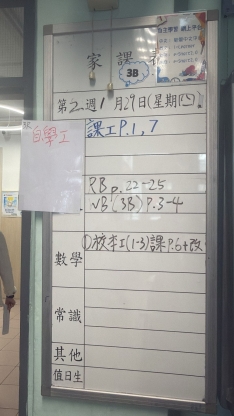 家課
3B
第二週1月29日(星期四)
自學工
課工P.1,7
PB p.22-25
VB(3B) P.3-4
數學
①校本工(1-3)課P.6+改
常識
其他
值日生